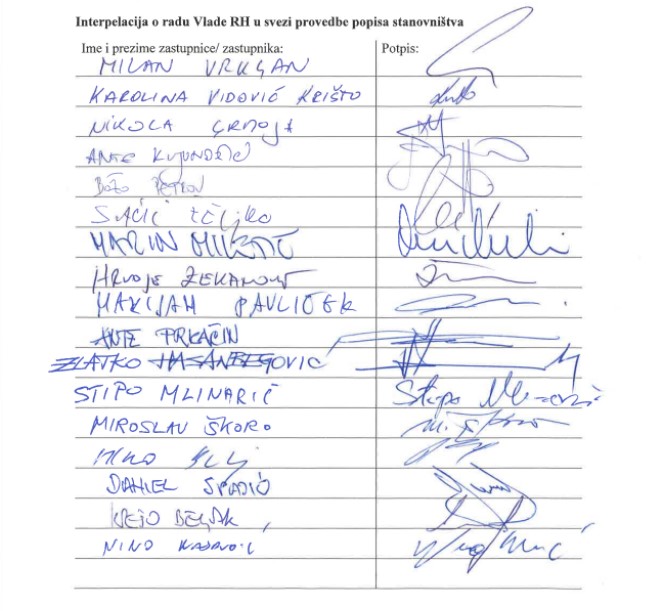 Interpelacija o radu Vlade RH u svezi provedbe popisa stanovništva
Ime i prezime zastupnice/ zastupnika: Potpis:
MILAN VRKLJAN
KAROLINA VIDOVIĆ KRIŠTO
NIKOLA GRMOJA
ANTE KUJUNDŽIĆ
BOŽO PETROV
SAČIĆ ŽELJKO
MARIN MILETIĆ
HRVOJE ZEKANOVIĆ
MARIJAN PAVLIČEK
ANTE PRKAČIN
ZLATKO HASANBEGOVIĆ
STIPO MLINARIĆ Stipo
MIROSLAV ŠKORO
DANIEL SPAJIĆ
KREJO BELJAK
NINO